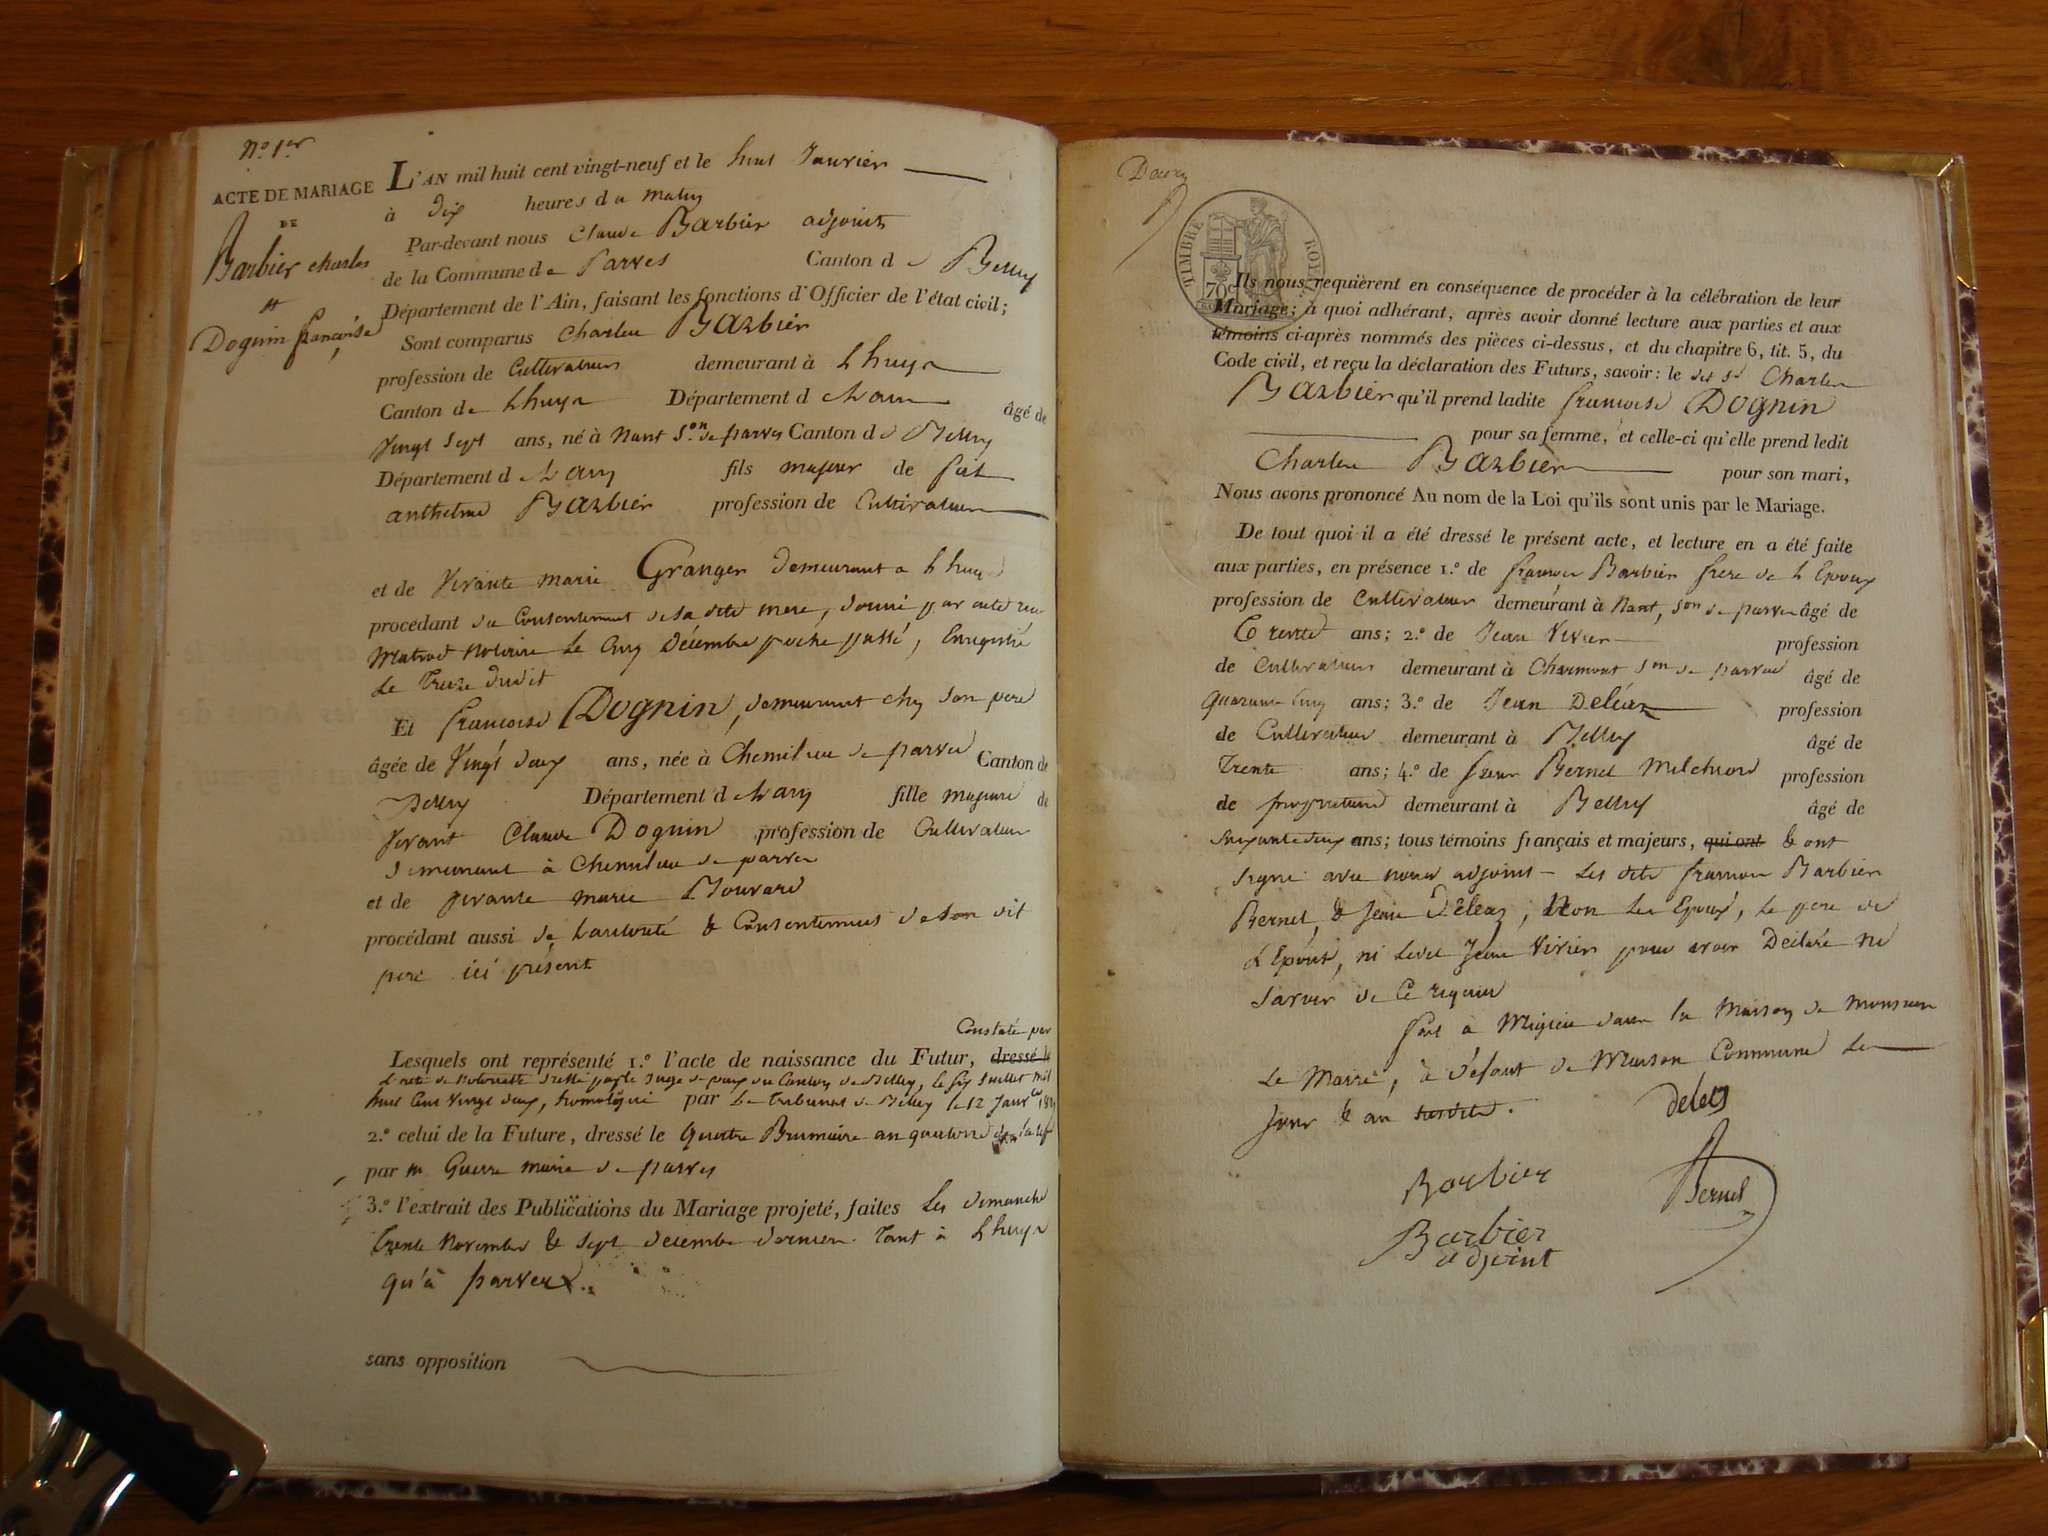 N.º 1.er
ACTE DE MARIAGE
DE
Barbier charles
et
Dognin françoise
L'AN mil huit cent vingt-neuf et le huit Janvier
à dix heures du matin
Par-devant nous Claude Barbier adjoint
de la Commune de Parves Canton de Belley
Département de l'Ain, faisant les fonctions d'Officier de l'état civil;
Sont comparus Charles Barbier
profession de Cultivateur demeurant à Lhuys
Canton de Lhuys Département de Lain âgé de
Vingt Sept ans, né à Nant S.on de parves Canton de Belley
Département de Lain fils majeur de feu
anthelme Barbier profession de Cultivateur
et de Vivante marie Granger demeurant a Lhuys
procedant du Consentement de sa dite mere, donné par acte recu
notaire Le Cinq Décembre proche passé, Enregistré
Le Treize dudit
Et françoise Dognin, demeurant chez Son pere
âgée de Vingt deux ans, née à Chemilieu de parves Canton de
Belley Département de Lain fille majeure de
Vivant Claude Dognin profession de Cultivateur
demeurant à Chemilieu de parves
et de vivante marie Bouvard
procédant aussi de Lautorité & Consentement de Son dit
pere ici présent
Constaté par
Lesquels ont représenté 1.º l'acte de naissance du Futur, dressé le
L'acte de Notoriété dressé par le Juge de paix du Canton de Belley, le six Juillet mil
huit Cent Vingt deux, homologué par Le Tribunal de Belley le 12 Janv
2.º celui de la Future, dressé le Quatre Brumaire an quatorze
par m. Guerre maire de parves
3.º l'extrait des Publications du Mariage projeté, faites Les dimanche
Trente Novembre & Sept decembre dernier Tant à Lhuys
qu'à parves.
sans opposition
TIMBRE ROYAL
70
Ils nous requièrent en conséquence de procéder à la célébration de leur
Mariage; à quoi adhérant, après avoir donné lecture aux parties et aux
témoins ci-après nommés des pièces ci-dessus, et du chapitre 6, tit. 5, du
Code civil, et reçu la déclaration des Futurs, savoir: le dit Sr Charles
Barbier qu'il prend ladite françoise Dognin
pour sa femme, et celle-ci qu'elle prend ledit
Charles Barbier pour son mari,
Nous avons prononcé Au nom de la Loi qu'ils sont unis par le Mariage.
De tout quoi il a été dressé le présent acte, et lecture en a été faite
aux parties, en présence 1.º de françois Barbier frere de L Epoux
profession de Cultivateur demeurant à Nant, Son de parves âgé de
Trente ans; 2.º de Jean Vivier profession
de Cultivateur demeurant à Charmont Son de parves âgé de
Quarante Cinq ans; 3.º de Jean Deléaz profession
de Cultivateur demeurant à Belley âgé de
Trente ans; 4.º de Sieur Bernet Melchior profession
de propriétaire demeurant à Belley âgé de
Soixante deux ans; tous témoins français et majeurs, qui ont & ont
Signé avec nous adjoint - Les dits francois Barbier
Bernet, & Jean Deleaz, Non Les Epoux, Le pere de
L'Epouse, ni Ledit Jean Vivier pour avoir Déclaré ne
Savoir de Ce requis
fait a Migieu dans la Maison de Monsieur
Le Maire, à défaut de Maison Commune Les
Jour & an susdits.
deleaz
Barbier
Bernet
Barbier
adjoint